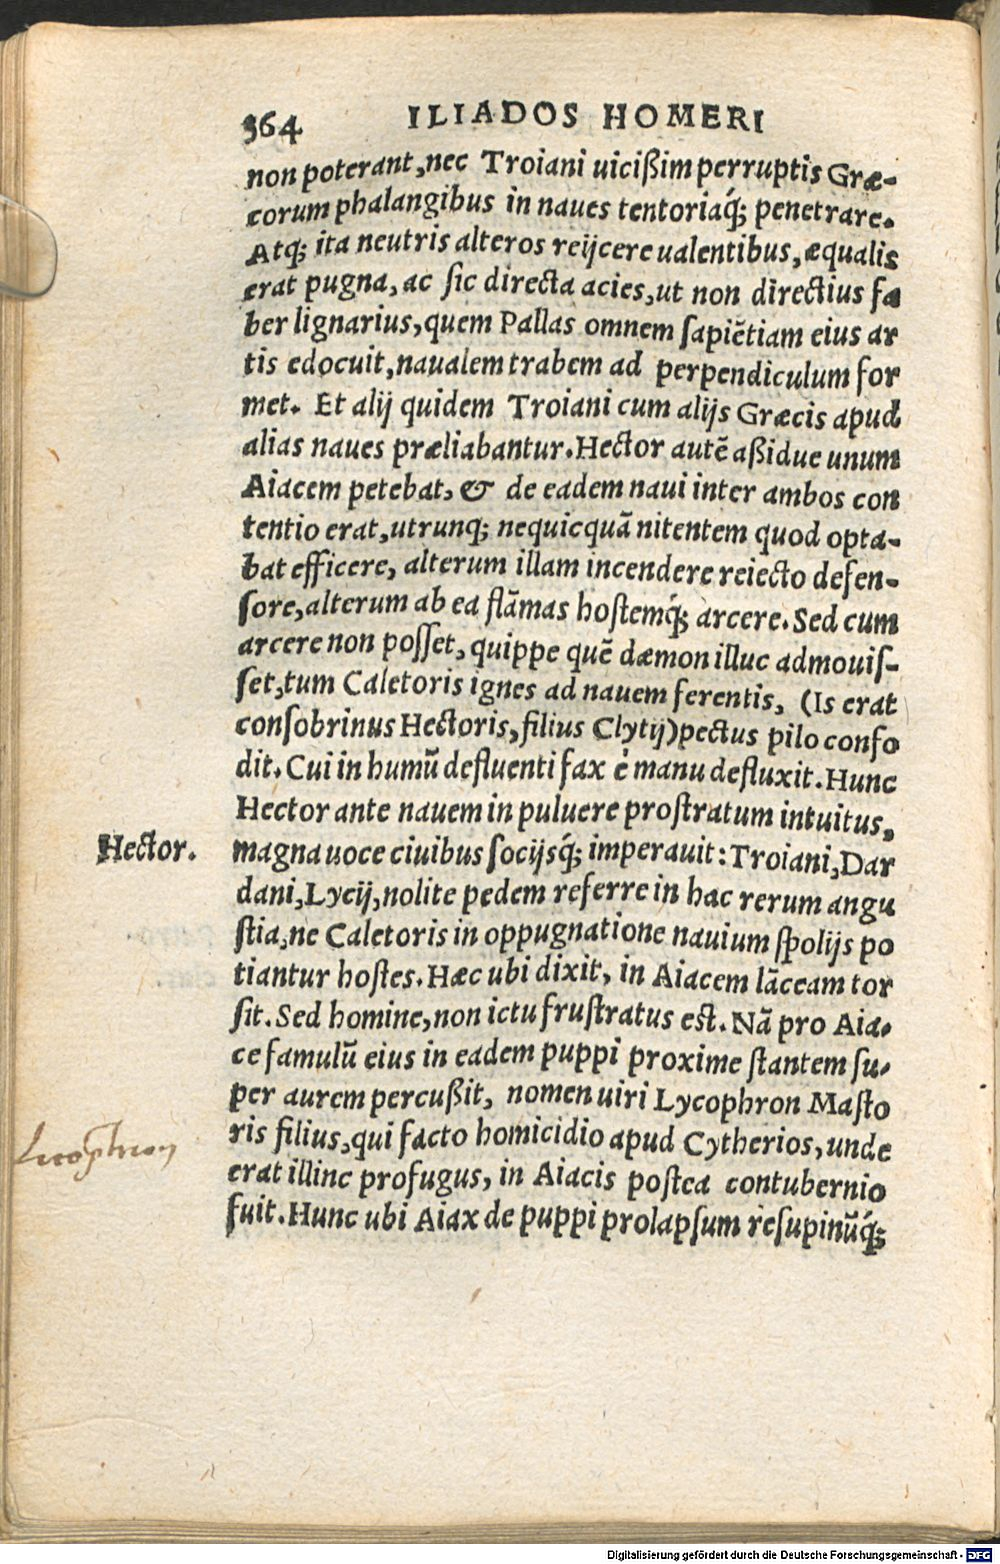 364 ILIADOS HOMERI
non poterant, nec Troiani uicißim perruptis Græ-
corum phalangibus in naues tentoriaq́; penetrare.
Atq; ita neutris alteros reijcere ualentibus, æqualis
erat pugna, ac sic directa acies, ut non directius fa
ber lignarius, quem Pallas omnem sapiẽtiam eius ar
tis edocuit, naualem trabem ad perpendiculum for
met. Et alij quidem Troiani cum alijs Græcis apud
alias naues præliabantur. Hector autẽ aßidue unum
Aiacem petebat, & de eadem naui inter ambos con
tentio erat, utrunq; nequicquã nitentem quod opta-
bat efficere, alterum illam incendere reiecto defen-
sore, alterum ab ea flãmas hostemq́; arcere. Sed cum
arcere non posset, quippe quẽ dæmon illuc admouis-
set, tum Caletoris ignes ad nauem ferentis, (Is erat
consobrinus Hectoris, filius Clytij) pectus pilo confo
dit. Cui in humũ defluenti fax è manu defluxit. Hunc
Hector ante nauem in puluere prostratum intuitus,
Hector. magna uoce ciuibus socijsq́; imperauit: Troiani, Dar
dani, Lycij, nolite pedem referre in hac rerum angu
stia, ne Caletoris in oppugnatione nauium spolijs po
tiantur hostes. Hæc ubi dixit, in Aiacem lãceam tor
sit. Sed homine, non ictu frustratus est. Nã pro Aia-
ce famulũ eius in eadem puppi proxime stantem su-
per aurem percußit, nomen uiri Lycophron Masto
ris filius, qui facto homicidio apud Cytherios, unde
Licophron
erat illinc profugus, in Aiacis postea contubernio
fuit. Hunc ubi Aiax de puppi prolapsum resupinũq́;
Digitalisierung gefördert durch die Deutsche Forschungsgemeinschaft - DFG